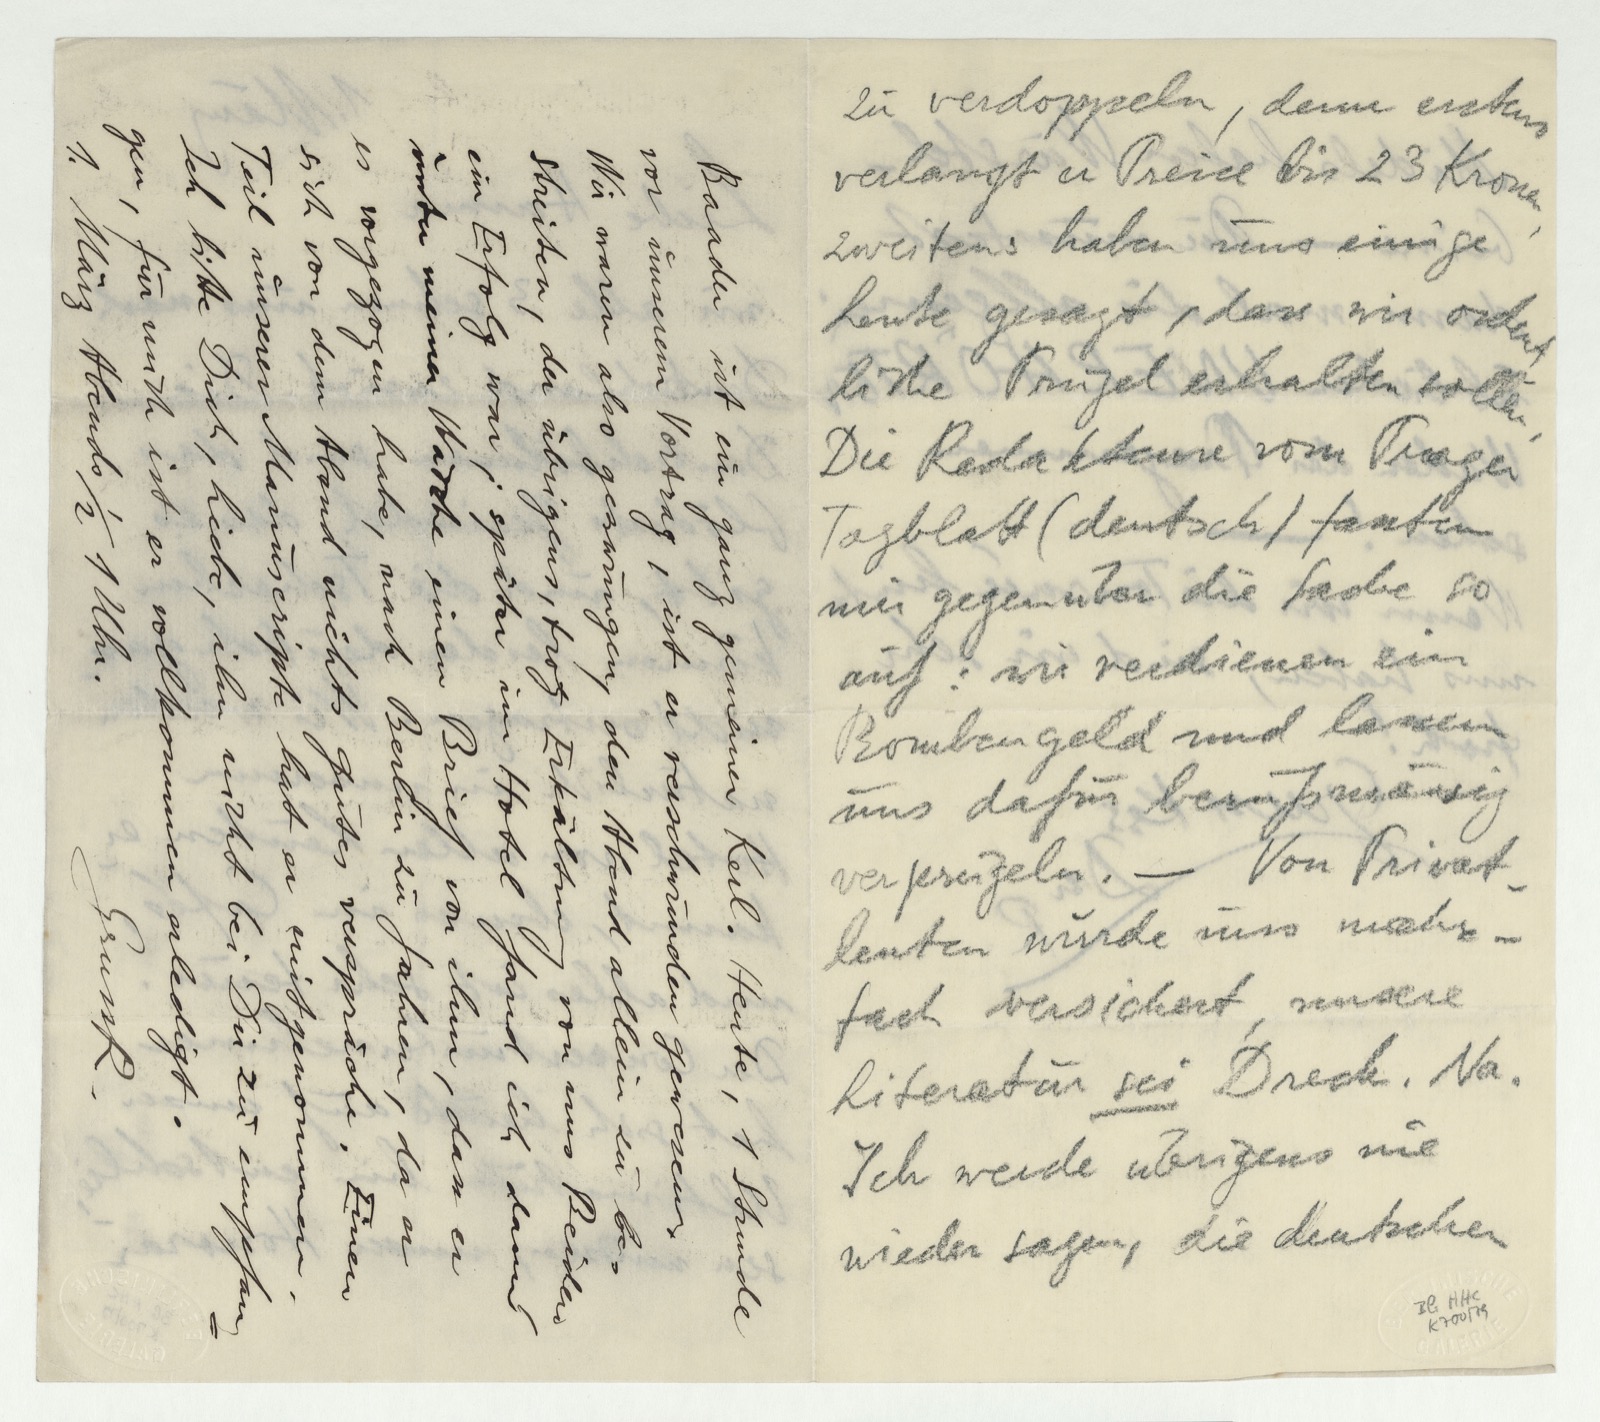 Baader ist ein ganz gemeiner Kerl. Heute, 1 Stunde
vor unserem Vortrag, ist er verschwunden gewesen.
Wir waren also gezwungen, den Abend allein zu be-
streiten, der übrigens, trotz Erkältung von uns Beiden
ein Erfolg war; später im Hotel fand ich dann
unter meiner Wäsche einen Brief von ihm, dass er
es vorgezogen habe, nach Berlin zu fahren, da er
sich von dem Abend nichts Gutes verspräche. Einen
Teil unserer Manuscripte hat er mitgenommen.
Ich bitte Dich, Liebe, ihn nicht bei Dir zu empfan=
gen, für mich ist er vollkommen erledigt.
1. März Abends ½ 1 Uhr.
zu verdoppeln, denn erstens
verlangt er Preise bis 23 Kronen,
zweitens haben uns einige
Leute gesagt, dass wir ordent
liche Prügel erhalten sollen.
Die Redakteure vom Prager
Tagblatt (deutsch) fassten
mir gegenüber die Sache so
auf: wir verdienen ein
Bombengeld und lassen
uns dafür berufsmässig
verprügeln. — Von Privat-
leuten wurde uns mehr-
fach versichert, unsere
Literatur sei Dreck. Na.
Ich werde übrigens nie
wieder sagen, die deutschen
K700/79